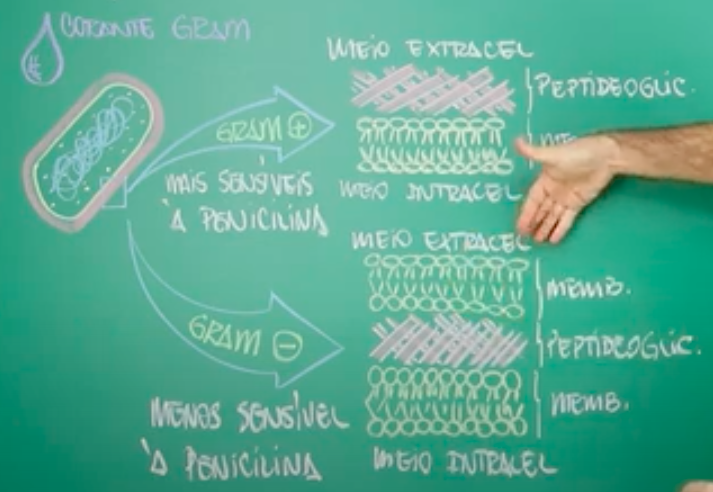 CORANTE GRAM
MEIO EXTRACEL
PEPTIDEOGLIC.
GRAM +
MAIS SENSÍVEIS
À PENICILINA
MEIO INTRACEL
MEIO EXTRACEL
MEMB.
GRAM -
PEPTIDEOGLIC.
MENOS SENSÍVEL
À PENICILINA
MEMB.
MEIO INTRACEL